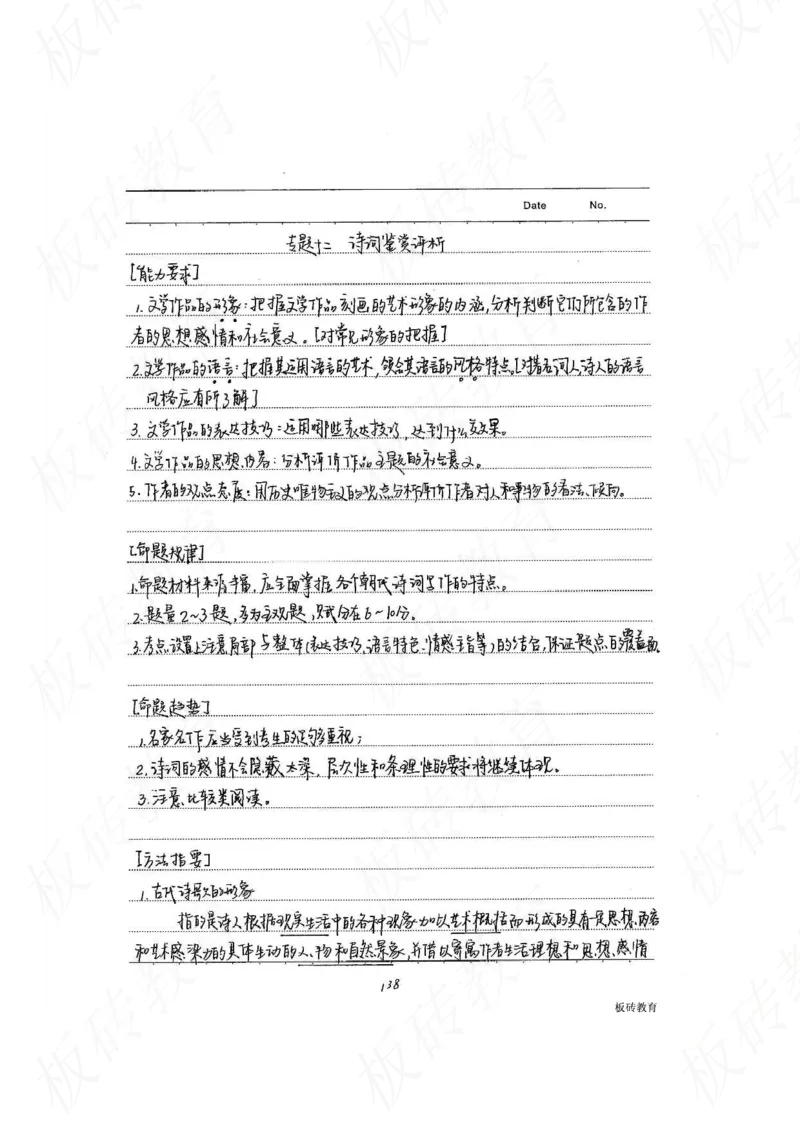 Date No.
专题十二 诗词鉴赏评析
[能力要求]
1. 文学作品的形象：把握文学作品刻画的艺术形象的内涵,分析判断它们所包含的作
者的思想感情和社会意义。[对常见形象的把握]
2.文学作品的语言：把握其运用语言的艺术，领会其语言的风格特点。[对著名词人诗人的语言
风格应有所了解]
3. 文学作品的表达技巧：运用哪些表达技巧，达到什么效果。
4.文学作品的思想内容：分析评价作品主题的社会意义。
5. 作者的观点态度：用历史唯物主义的观点分析评价作者对人和事物的看法、倾向。
[命题规律]
1.命题材料来源丰富，应全面掌握各个朝代诗词写作的特点。
2.题量2~3题，多为主观题，赋分在6~10分。
3.考点设置上注意局部与整体(表达技巧、语言特色、情感主旨等)的结合,保证考点的覆盖面
[命题趋势]
1.名家名作应当受到考生的足够重视；
2.诗词的感情不会隐藏太深，层次性和条理性的要求将继续体现。
3.注意比较类阅读。
[方法指要]
1.古代诗歌的形象
指的是诗人根据现实生活中的各种现象加以艺术概括而形成的具有一定思想内容
和艺术感染力的具体生动的人、物和自然景象,并借以寄寓作者生活理想和思想感情
138
板砖教育
板砖教育